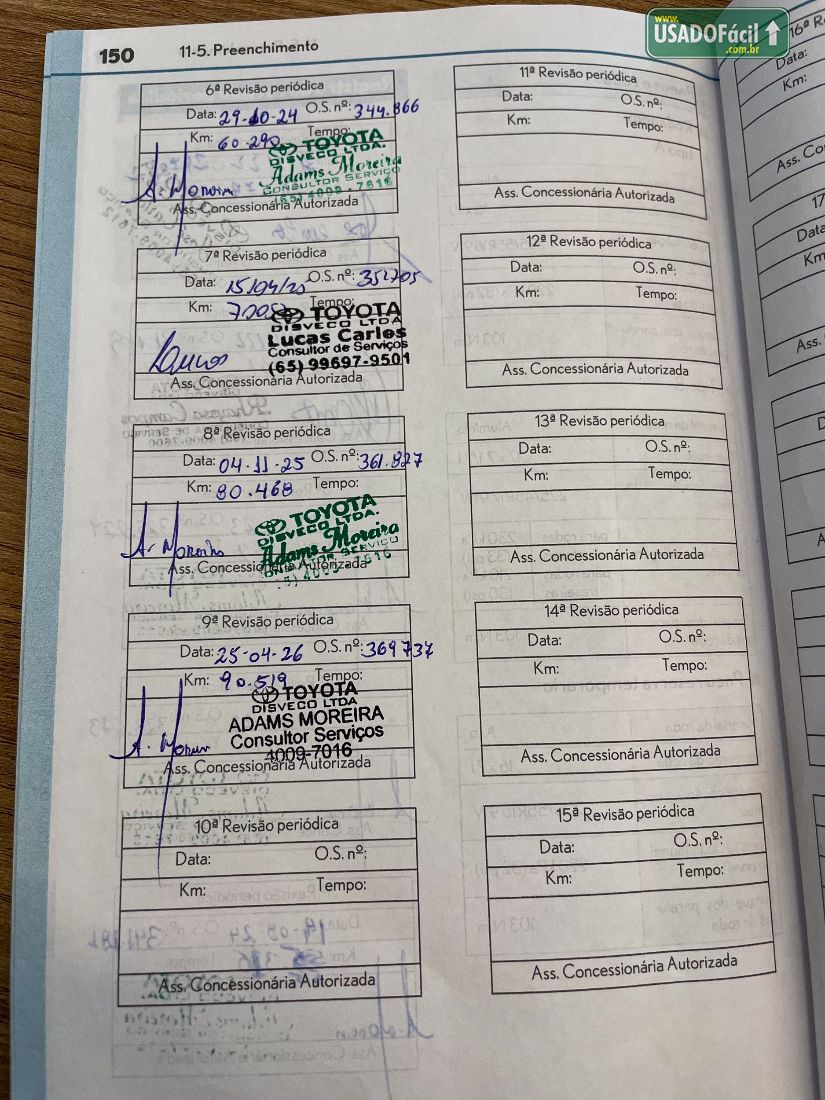 www.
USADOFácil
.com.br
150 11-5. Preenchimento
6ª Revisão periódica
Data: 29-10-24 O.S. nº: 344.866
Km: 60.290 Tempo:
TOYOTA
DISVECO LTDA.
Adams Moreira
CONSULTOR SERVIÇO
(65) 4009-7816
A. Moreira
Ass. Concessionária Autorizada
7ª Revisão periódica
Data: 15/04/25 O.S. nº: 352705
Km: Tempo:
TOYOTA
DISVECO LTDA
Lucas Carlos
Consultor de Serviços
(65) 99697-9501
Ass. Concessionária Autorizada
8ª Revisão periódica
Data: 04-11-25 O.S. nº: 361.827
Km: 80.468 Tempo:
TOYOTA
DISVECO LTDA.
Adams Moreira
CONSULTOR SERVIÇO
Ass. Concessionária Autorizada
9ª Revisão periódica
Data: 25-04-26 O.S. nº: 369737
Km: 90.519 Tempo:
TOYOTA
DISVECO LTDA
ADAMS MOREIRA
Consultor Serviços
4009-7016
Ass. Concessionária Autorizada
10ª Revisão periódica
Data: O.S. nº:
Km: Tempo:
Ass. Concessionária Autorizada
11ª Revisão periódica
Data: O.S. nº:
Km: Tempo:
Ass. Concessionária Autorizada
12ª Revisão periódica
Data: O.S. nº:
Km: Tempo:
Ass. Concessionária Autorizada
13ª Revisão periódica
Data: O.S. nº:
Km: Tempo:
Ass. Concessionária Autorizada
14ª Revisão periódica
Data: O.S. nº:
Km: Tempo:
Ass. Concessionária Autorizada
15ª Revisão periódica
Data: O.S. nº:
Km: Tempo:
Ass. Concessionária Autorizada
16ª R
Data:
Km:
Ass. Co
17
Data
Km
Ass.